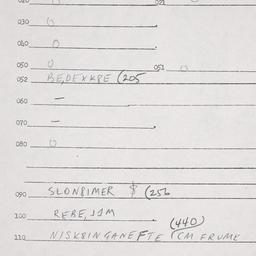 020 021 0
030 0
040 0
050 0 051 0
052 BE,DEXKPE (205
060 –
070 –
080 0
090 SLONPIMER $ (256
100 REBE, JIM
(440)
110 NISKRINGANEFTE (CM FRUME